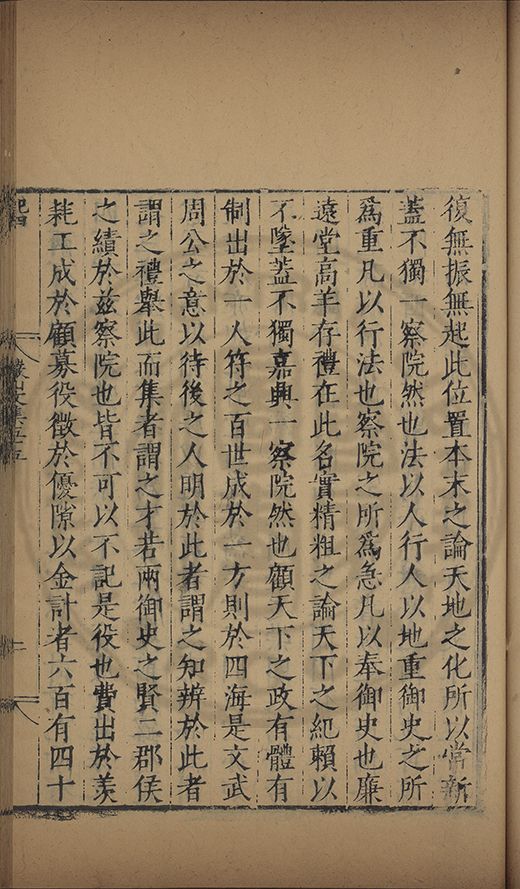 復無振無起此位置本末之論天地之化所以常新
蓋不獨一察院然也法以人行人以地重御史之所
爲重凡以行法也察院之所爲急凡以奉御史也廉
遠堂高羊存禮在此名實精粗之論天下之紀賴以
不墜蓋不獨嘉興一察院然也顧天下之政有體有
制出於一人符之百世成於一方則於四海是文武
周公之意以待後之人明於此者謂之知辨於此者
謂之禮舉此而集者謂之才若兩御史之賢二郡侯
之績於兹察院也皆不可以不記是役也費出於羨
耗工成於顧募役徵於優隙以金計者六百有四十
記四
集五五
二